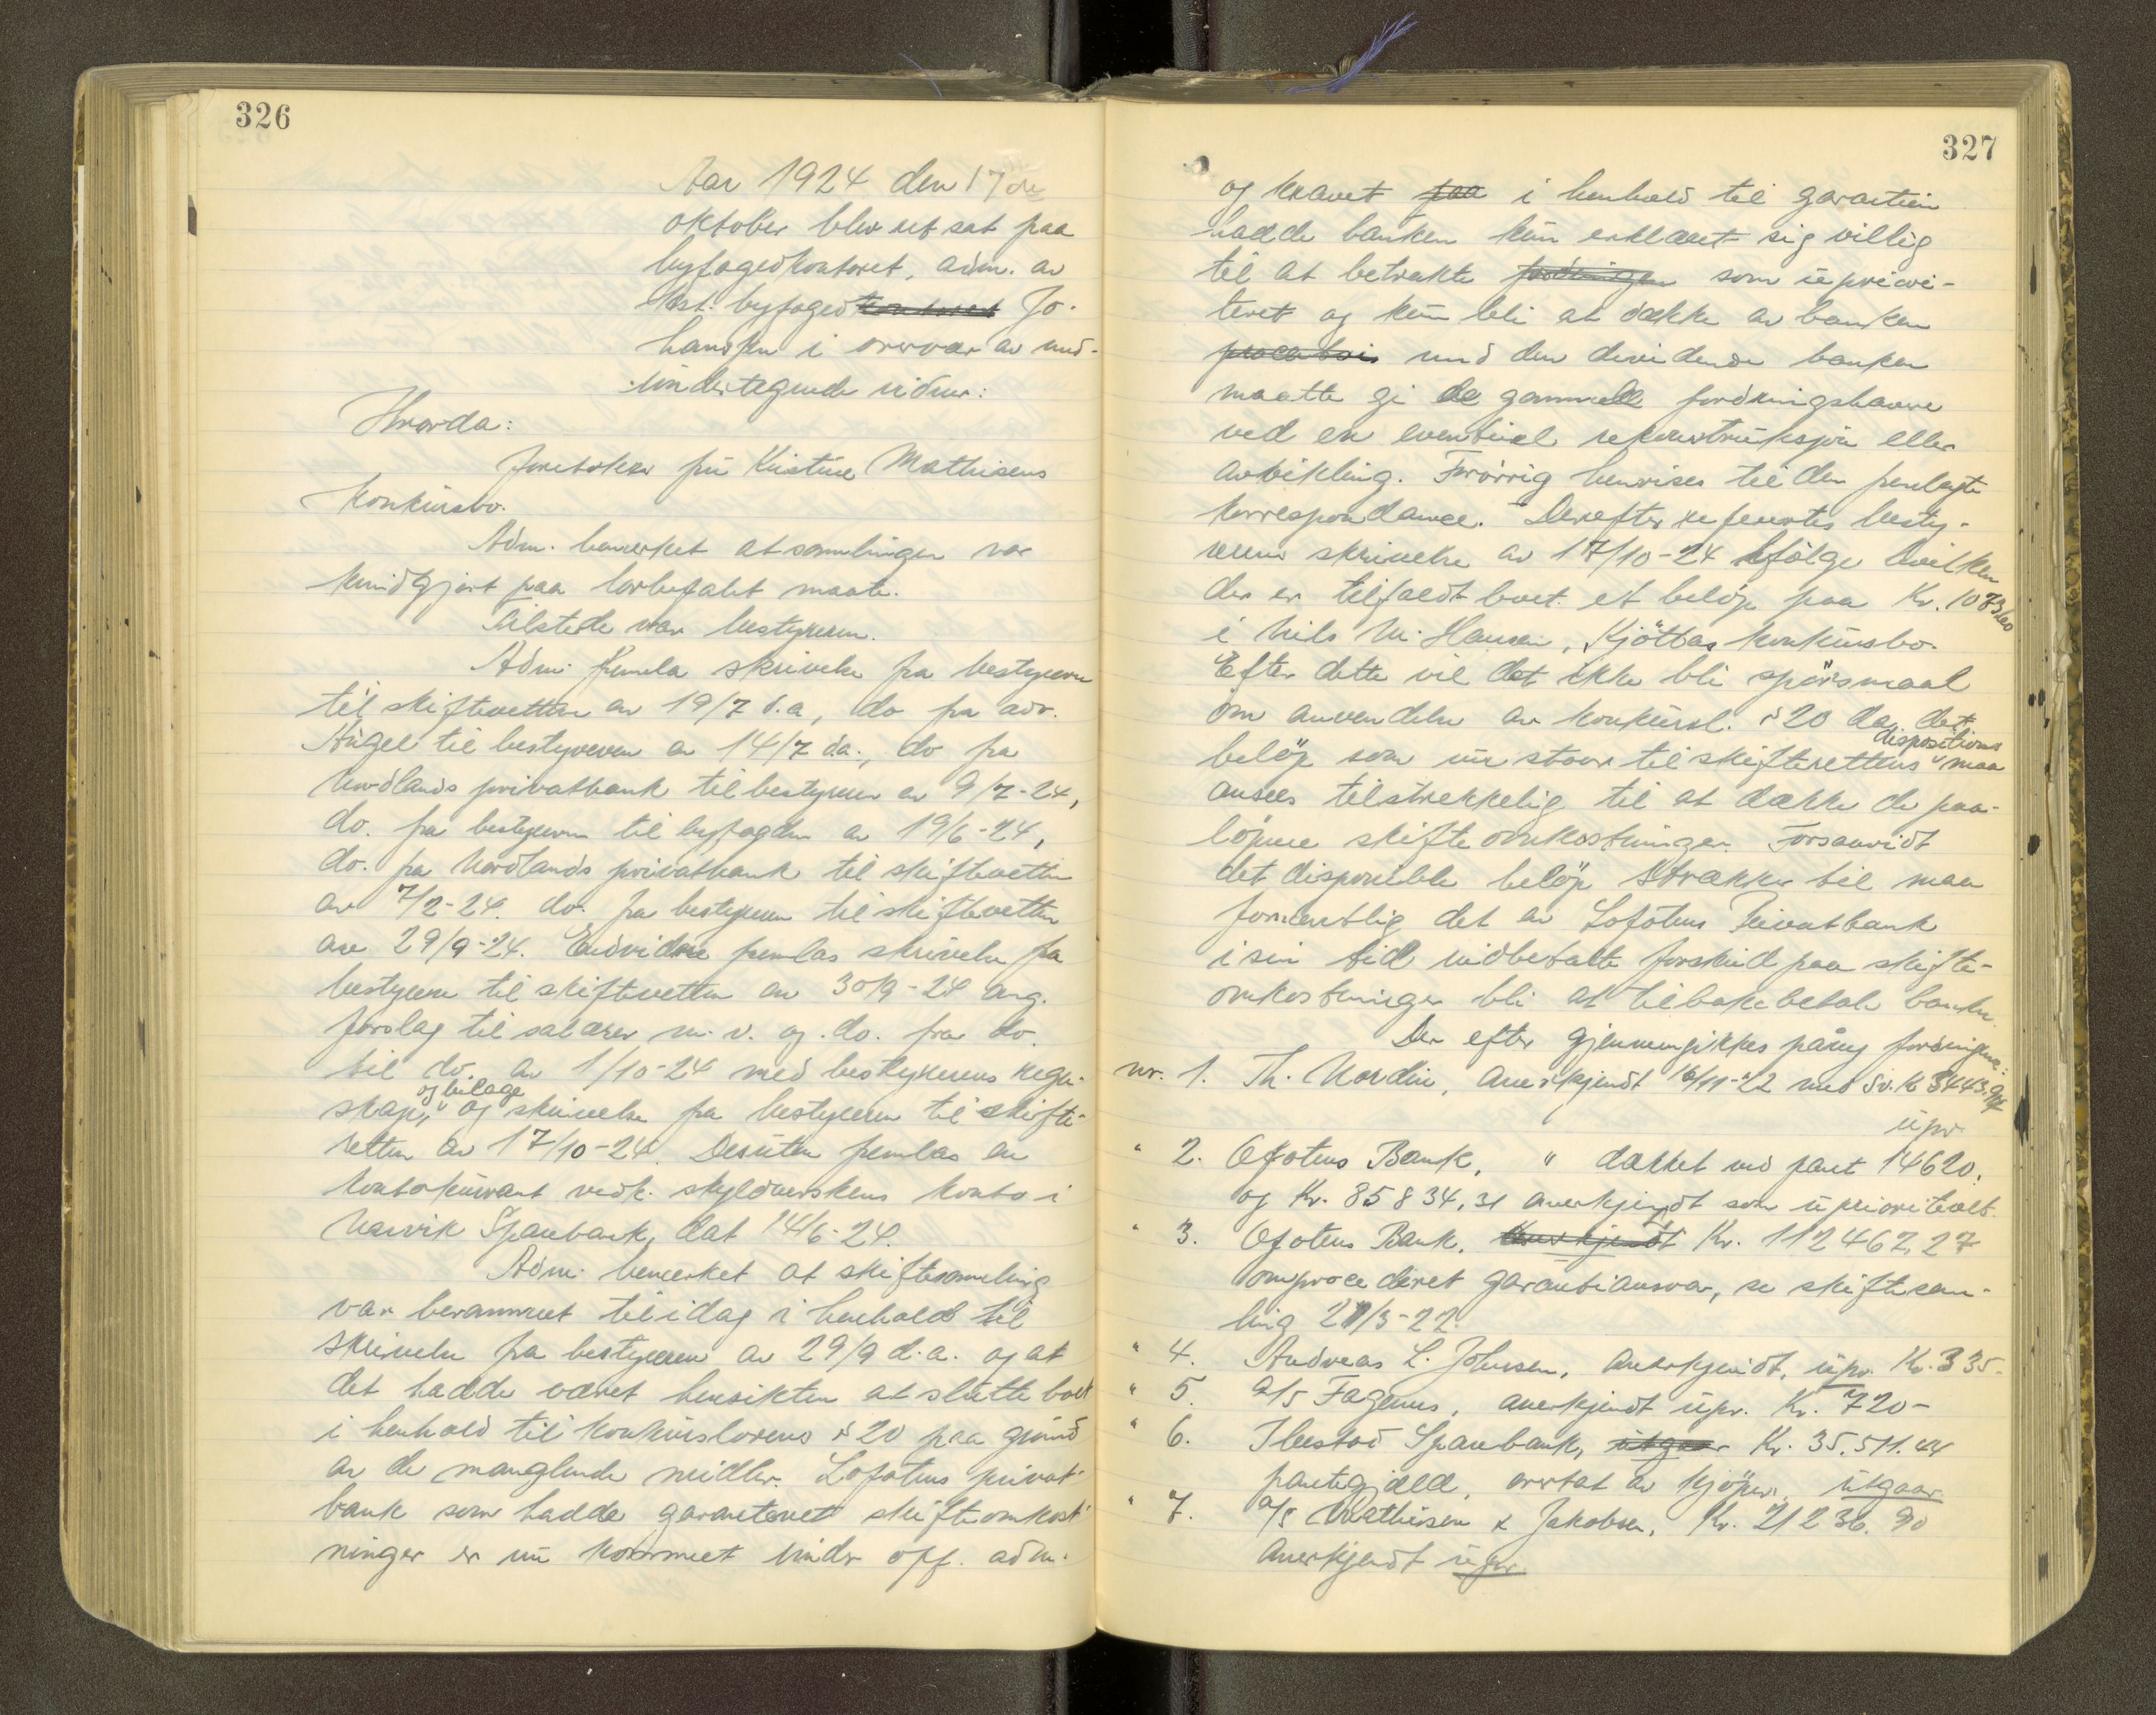 326
Aar 1924 den 17de
oktober blev ret sat paa
byfogedkontoret, adm. av
kst. byfoged kontoret Jo-
hansen i overvær av med-
undertegnede vidner:
Hvorda:
foretokes fru Kristine Mathisens
konkursbo.
Adm. bemerket at samlingen var
kundgjort paa lovbefalet maate.
Tilstede var bestyreren.
Adm. fremla skrivelse fra bestyreren
til skifteretten av 19/7 d.a, do fra adv.
Angel til bestyreren av 14/7 d.a., do fra
Nordlands privatbank til bestyreren av 9/7-24,
do. fra bestyreren til byfogden av 19/6-24,
do. fra Nordlands privatbank til skifteretten
av 7/2-24. do. fra bestyreren til skifteretten
av 29/9-24. Endvidere fremlas skrivelse fra
bestyreren til skifteretten av 30/9-24 ang.
forslag til salærer m.v. og do. fra do.
til do. av 1/10-24 med bestyrerens regn-
skap, og bilage og skrivelse fra bestyreren til skifte-
retten av 17/10-24. Desuten fremlas en
kontokurant vedk. skyldnerskens konto i
Narvik Sparebank, dat 14/6-24.
Adm. bemerket at skiftesamling
var berammet til idag i henhold til
skrivelse fra bestyreren av 29/9 d.a. og at
det hadde været hensikten at slutte boet
i henhold til konkurslovens § 20 paa grund
av de manglende midler. Lofotens privat-
bank som hadde garanteret skifteomkost-
ninger er nu kommet under off. adm.
327
og kravet paa i henhold til garantien
hadde banken kun erklæret sig villig
til at betrakte fordringen som uprivi-
teret og kun bli at dække av banken
med den dividende banken
maatte gi de gammelle fordringshavere
ved en eventuel rekonstruksjon eller
avvikling. Forøvrig henvises til den fremlagte
korrespondance. Derefter refereertes besty-
rerens skrivelse av 17/10-24 ifølge hvilken
der er tilfaldt boet et beløp paa Kr. 1073.60
i Nils M. Hansen, Kjöttas konkursbo.
Efter dette vil det ikke bli spørsmaal
om anvendelse av konkursl. § 20 da det
beløp som nu staar til skifterettens disposition maa
ansees tilstrekkelig til at dække de paa-
løpne skifteomkostninger. Forsaavidt
det disponible beløp strækker til maa
formentlig det av Lofotens Privatbank
i sin tid indbetalte forskud paa skifte-
omkostninger bli at tilbakebetale banken.
Derefter gjennemgikkes påny fordringene:
nr. 1. Th. Nordin, anerkjendt 16/11-22 med sv. K 3443.94
upr
" 2. Ofotens Bank, " dækket ved pant 14620.
og Kr. 85834,31 anerkjendt som uprioriteret.
" 3. Ofotens Bank, anerkjendt Kr. 112467,27
omprocederet garantiansvar, se skiftesam-
ling 21/3-22.
" 4. Andreas L. Johnsen, anerkjendt, upr. Kr. 335-
" 5. A/S Fagernes, anerkjendt upr. Kr. 720-
" 6. Ibestad Sparebank, utgaar Kr. 35.511.44
pantegjæld, overtat av kjøper, utgaar
" 7. A/S Mathisen & Jakobsen, Kr. 21236.90
anerkjendt upr